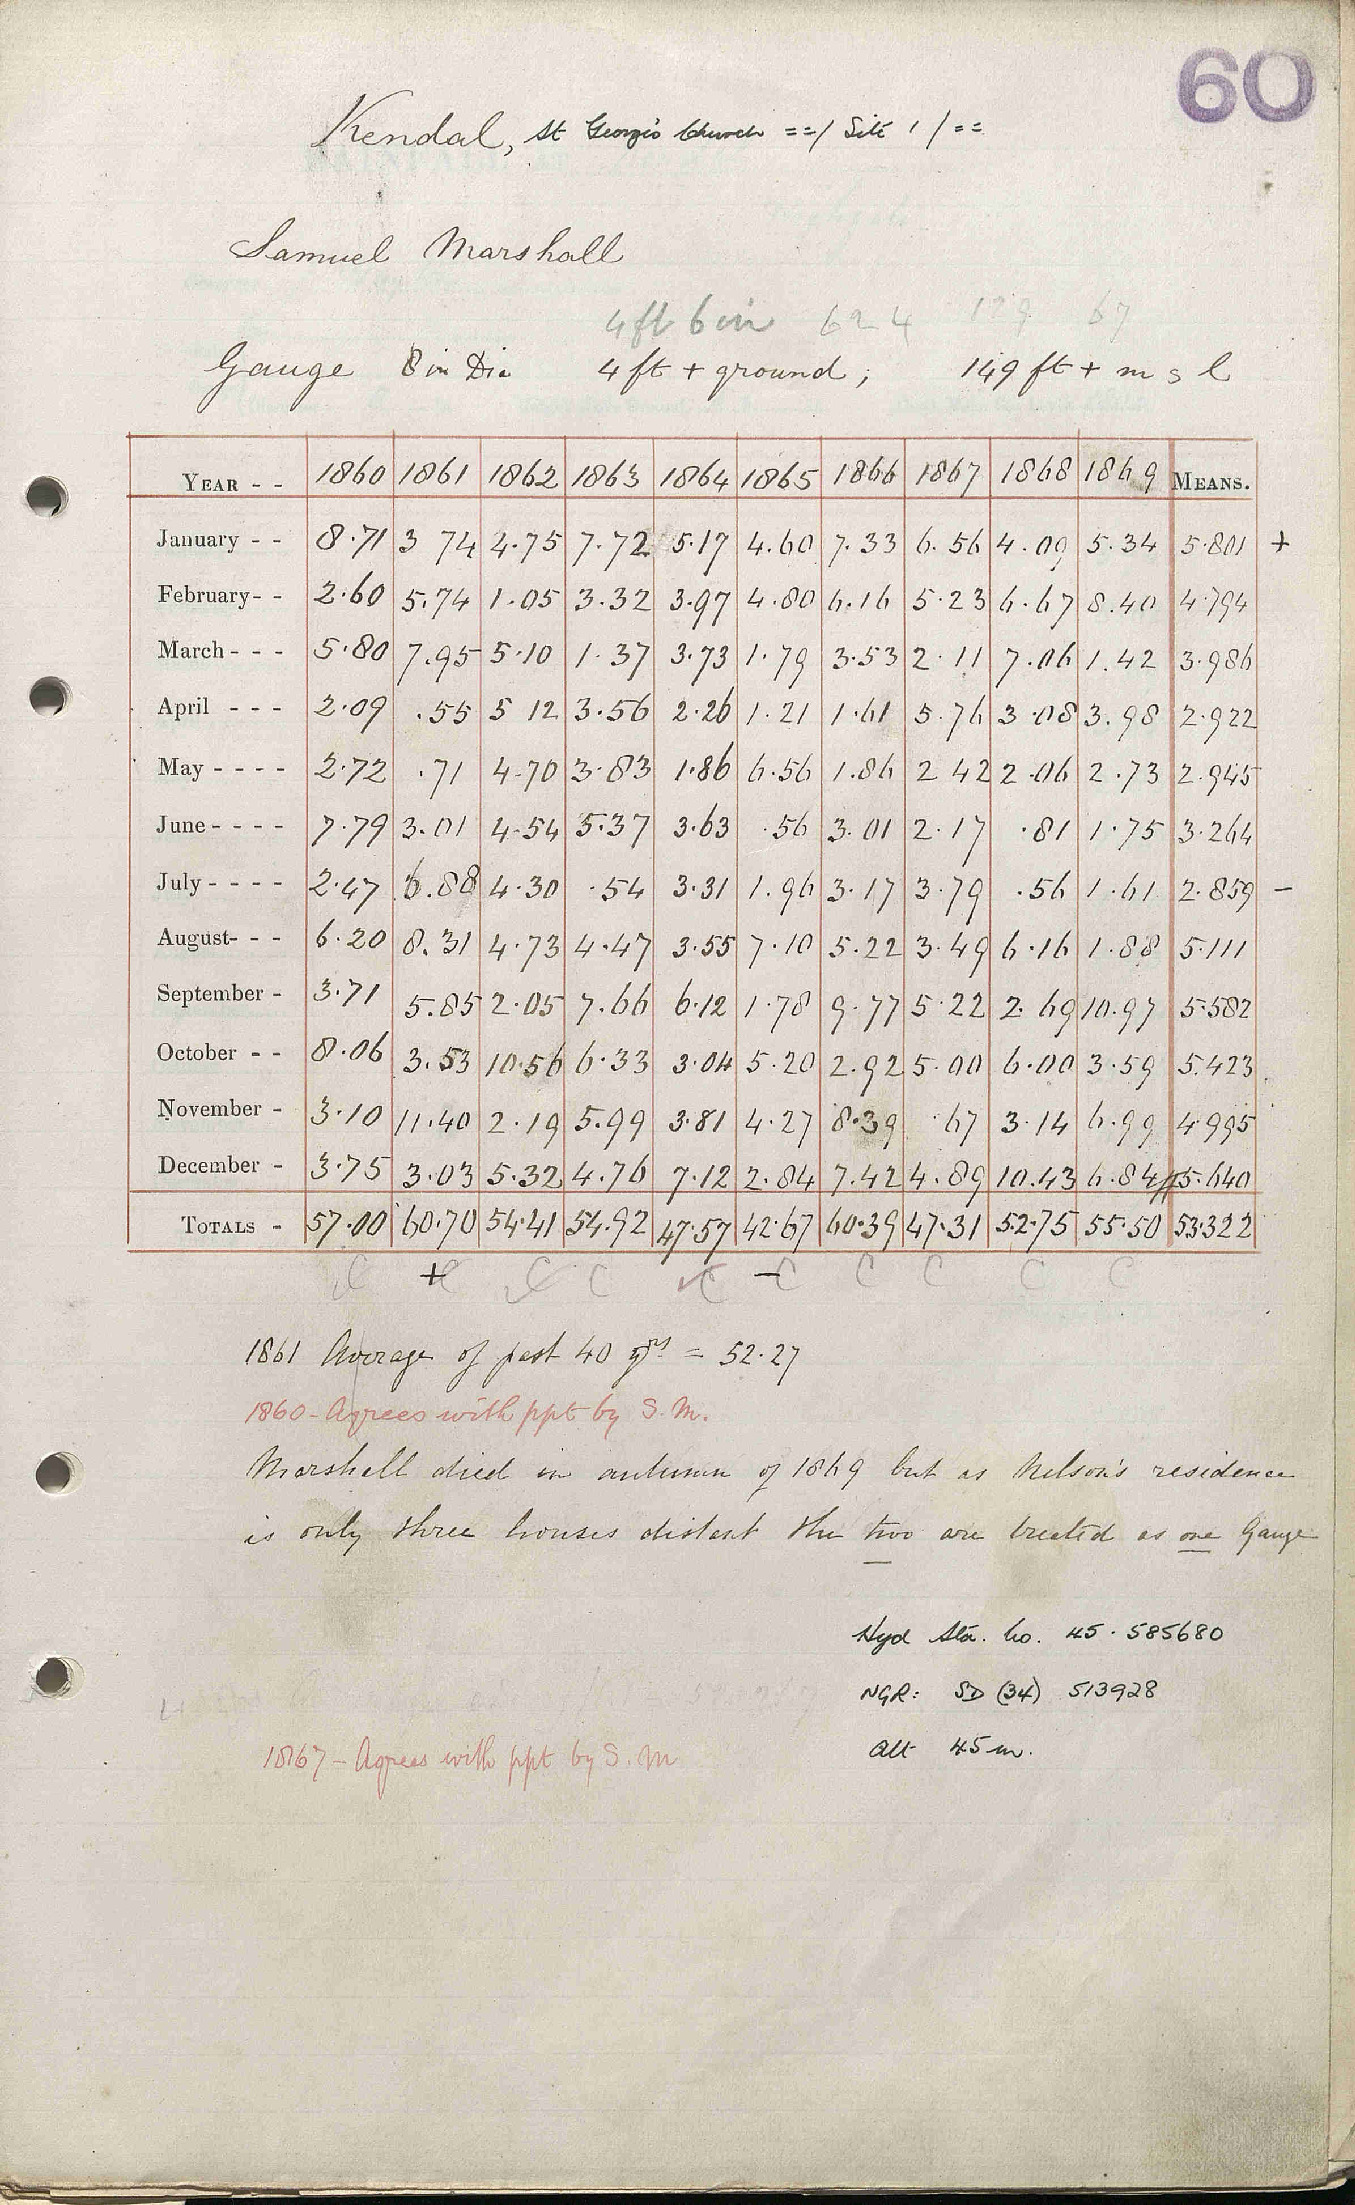 60
Kendal, St George's Church ==/ Site 1 /==
Samuel Marshall
4ft 6in 624 129 67
Gauge 8 in Dia 4 ft + ground ; 149 ft + m s l
YEAR - - 1860 1861 1862 1863 1864 1865 1866 1867 1868 1869 MEANS.
January - - 8.71 3 74 4.75 7.72 5.17 4.60 7.33 6.56 4.09 5.34 5.801 +
February - - 2.60 5.74 1.05 3.32 3.97 4.80 6.16 5.23 6.67 8.40 4.794
March - - - 5.80 7.95 5.10 1.37 3.73 1.79 3.53 2.11 7.06 1.42 3.986
April - - - 2.09 .55 5 12 3.56 2.26 1.21 1.61 5.76 3.08 3.98 2.922
May - - - - 2.72 .71 4.70 3.83 1.86 6.56 1.86 2 42 2.06 2.73 2.945
June - - - - 7.79 3.01 4.54 5.37 3.63 .56 3.01 2.17 .81 1.75 3.264
July - - - - 2.47 6.88 4.30 .54 3.31 1.96 3.17 3.79 .56 1.61 2.859 -
August - - - 6.20 8.31 4.73 4.47 3.55 7.10 5.22 3.49 6.16 1.88 5.111
September - 3.71 5.85 2.05 7.66 6.12 1.78 9.77 5.22 2.69 10.97 5.582
October - - 8.06 3.53 10.56 6.33 3.04 5.20 2.92 5.00 6.00 3.59 5.423
November - 3.10 11.40 2.19 5.99 3.81 4.27 8.39 .67 3.14 6.99 4.995
December - 3.75 3.03 5.32 4.76 7.12 2.84 7.42 4.89 10.43 6.84 5.640
TOTALS - 57.00 60.70 54.41 54.92 47.57 42.67 60.39 47.31 52.75 55.50 53.322
C + C C C C - C C C C C
1861 Average of past 40 yrs = 52.27
1860 - Agrees with ppt by S. M.
Marshall died in autumn of 1869 but as Nelson's residence
is only three houses distant the two are treated as one Gauge
Hyd Sta. No. 45.585680
NGR: SD (34) 513928
Alt 45m.
1867 - Agrees with ppt by S. M